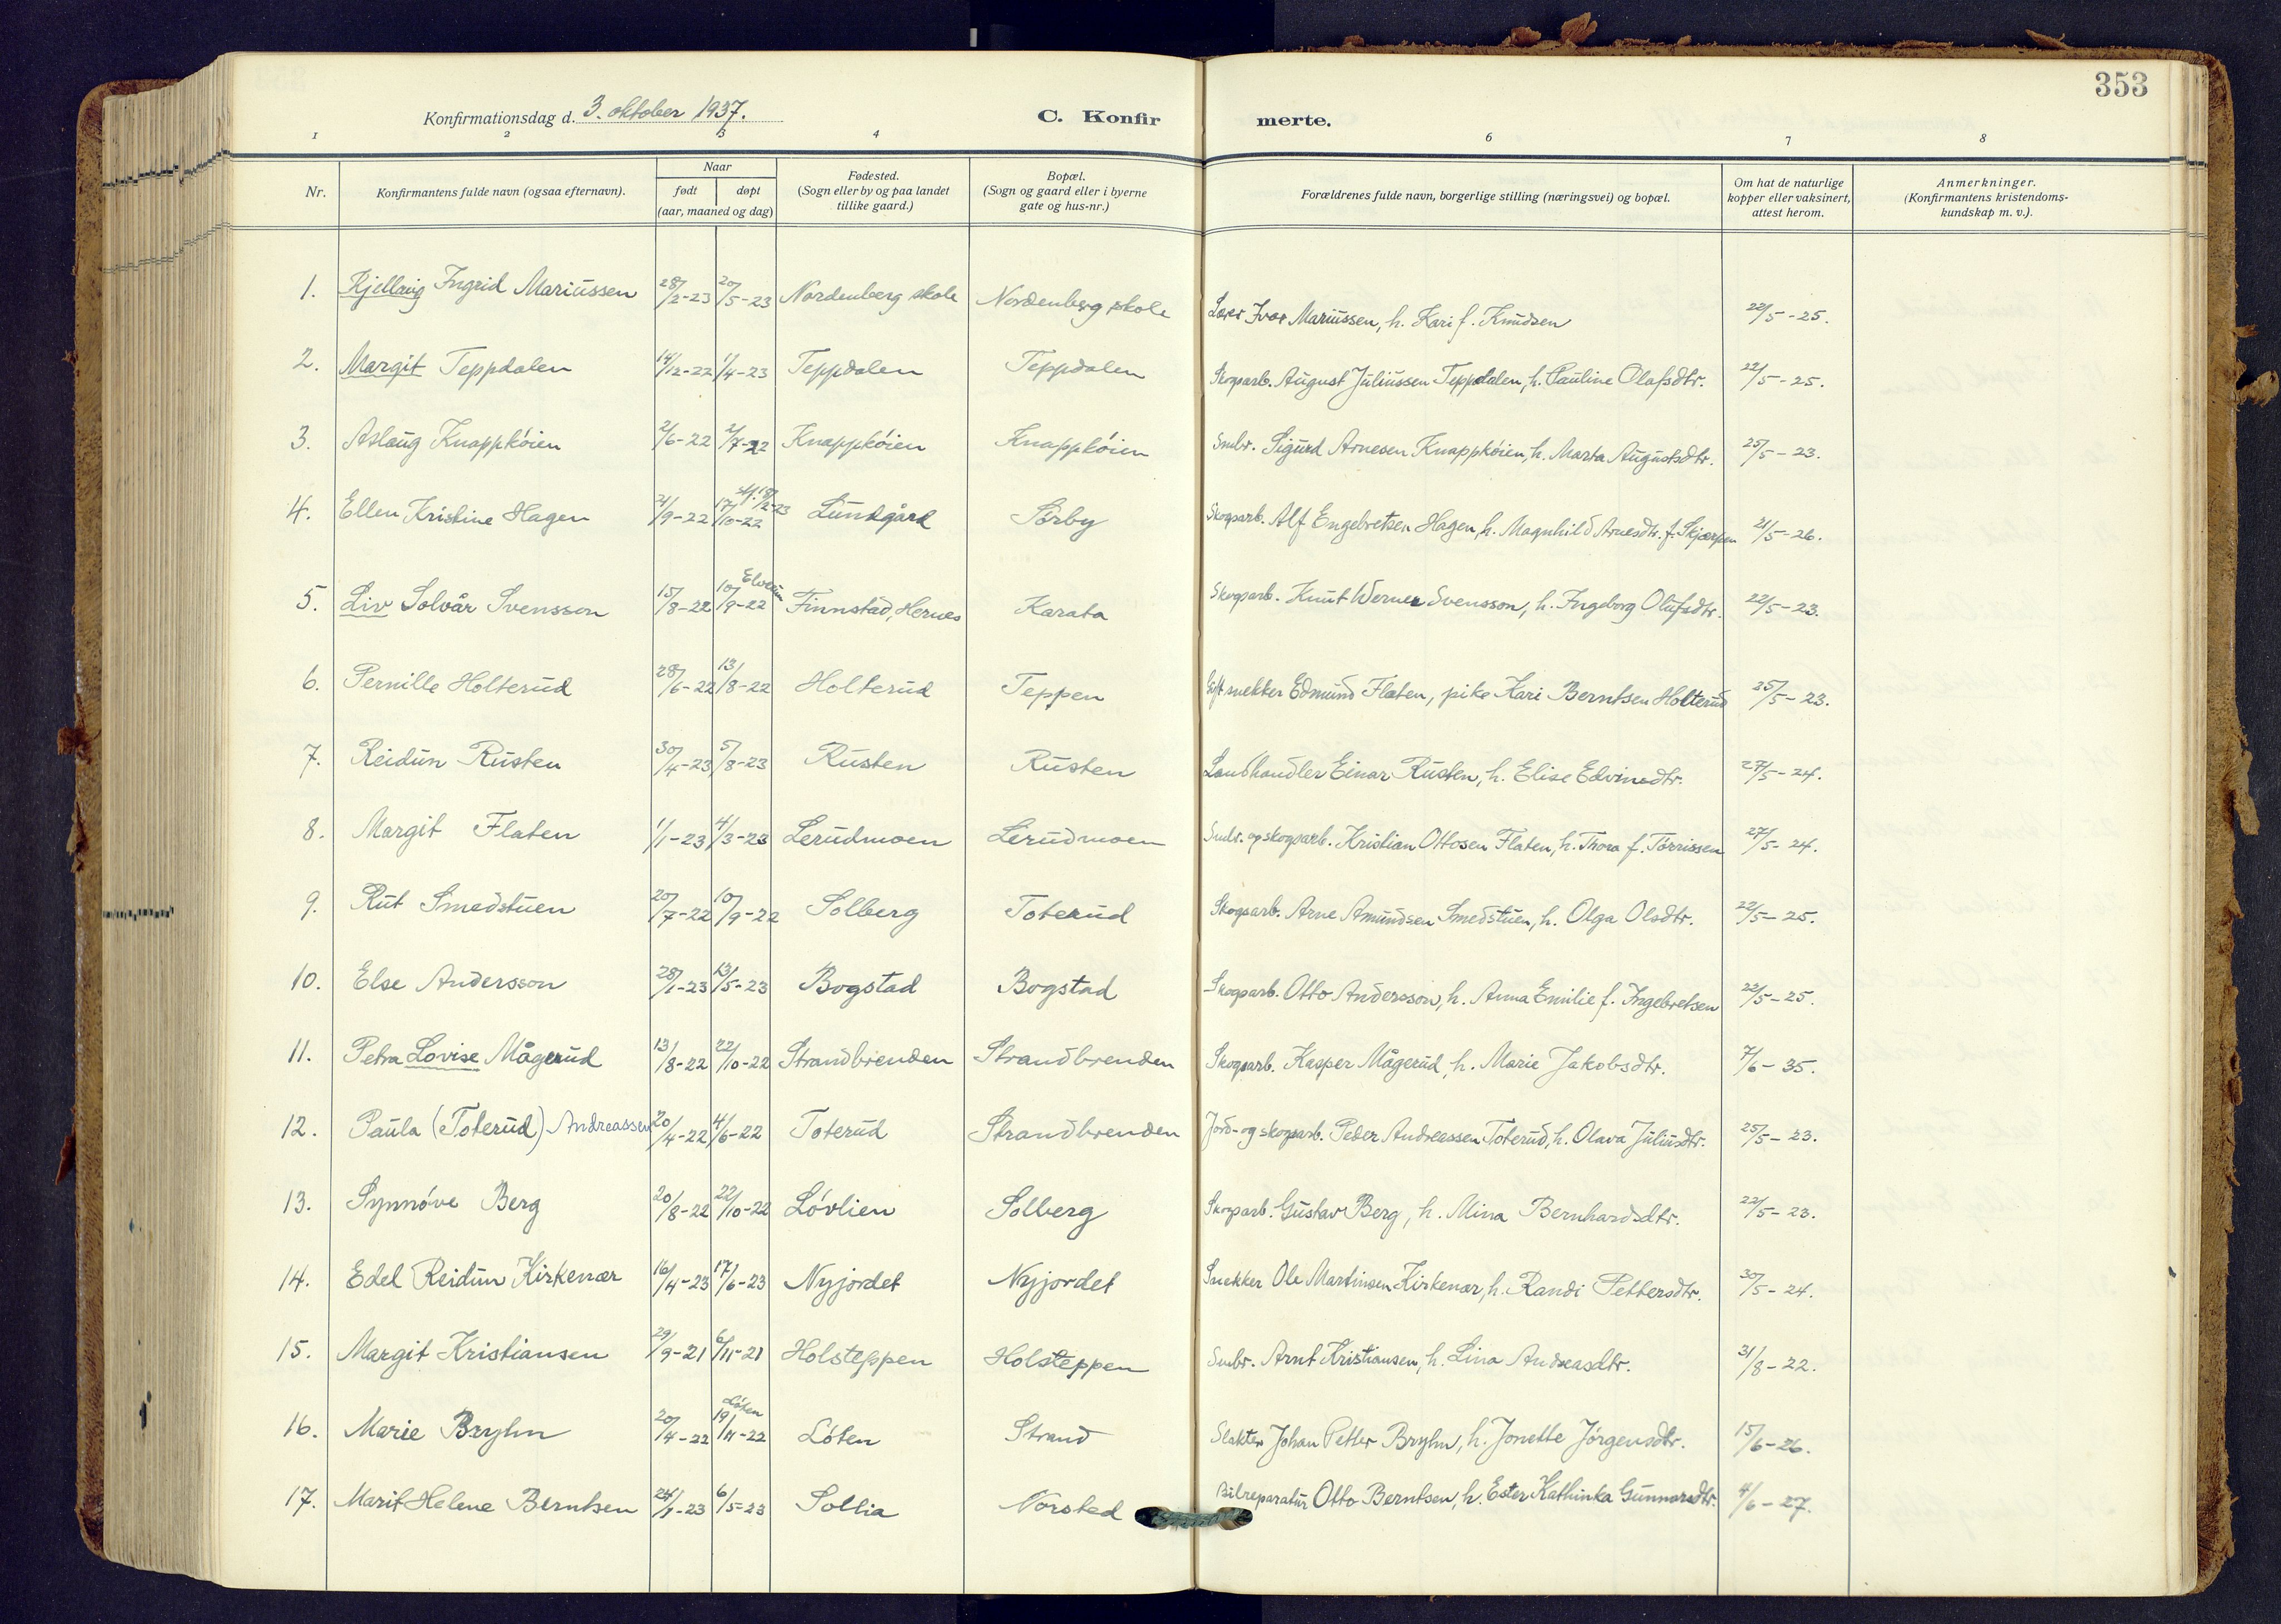 353
Konfirmationsdag d. 3. oktober 1937.
C. Konfirmerte.
1 2 3 4 6 7 8
Nr. Konfirmantens fulde navn (ogsaa efternavn). Naar født døpt (aar, maaned og dag) Fødested. (Sogn eller by og paa landet tillike gaard.) Bopæl. (Sogn og gaard eller i byerne gate og hus-nr.) Forældrenes fulde navn, borgerlige stilling (næringsvei) og bopæl. Om hat de naturlige kopper eller vaksinert, attest herom. Anmerkninger. (Konfirmantens kristendomskundskap m. v.).
1. Kjellaug Ingrid Mariussen 28/2-23 20/5-23 Nordenberg skole Nordenberg skole Lærer Ivar Mariussen, h. Kari f. Knudsen 22/5-25.
2. Margit Teppdalen 14/12-22 1/4-23 Teppdalen Teppdalen Skogsarb. August Juliussen Teppdalen, h. Pauline Olafsdtr. 22/5-25.
3. Aslaug Knappköien 2/6-22 2/7-22 Knappköien Knappköien Smbr. Sigurd Arnesen Knappköien, h. Marta Augustsdtr. 25/5-23.
4. Ellen Kristine Hagen 21/9-22 17/10-22 stf. 18/2-23 Lundgård Sörby Skogsarb. Alf Engebretsen Hagen, h. Magnhild Arnesdtr. f. Skjærpen 21/5-26.
5. Liv Solvår Svensson 15/8-22 10/9-22 Elverum Finnstad, Hernes Karata Skogsarb. Knut Werner Svensson, h. Ingeborg Olufsdtr. 22/5-23.
6. Pernille Holterud 28/6-22 13/8-22 Holterud Teppen Gift snekker Edmund Flaten, pike Kari Berntsen Holterud 25/5-23.
7. Reidun Rusten 30/4-23 5/8-23 Rusten Rusten Landhandler Einar Rusten, h. Elise Edvinsdtr. 27/5-24.
8. Margit Flaten 1/1-23 4/3-23 Lerudmoen Lerudmoen Smbr. og skogsarb. Kristian Ottosen Flaten, h. Thora f. Törrissen 27/5-24.
9. Rut Smedstuen 20/7-22 10/9-22 Solberg Toterud Skogsarb. Arne Amundsen Smedstuen, h. Olga Olsdtr. 22/5-25.
10. Else Andersson 28/1-23 13/5-23 Bogstad Bogstad Skogsarb. Otto Andersson, h. Anna Emilie f. Ingebretsen 22/5-25.
11. Petra Lovise Mågerud 13/8-22 22/10-22 Strandbrenden Strandbrenden Skogsarb. Kasper Mågerud, h. Marie Jakobsdtr. 7/6-35.
12. Paula (Toterud) Andreassen 20/4-22 4/6-22 Toterud Strandbrenden Jord- og skogsarb. Peder Andreassen Toterud, h. Olava Juliusdtr. 25/5-23.
13. Synnöve Berg 20/8-22 22/10-22 Lövlien Solberg Skogsarb. Gustav Berg, h. Mina Bernhardsdtr. 22/5-23.
14. Edel Reidun Kirkenær 16/4-23 17/6-23 Nyjordet Nyjordet Snekker Ole Martinsen Kirkenær, h. Randi Pettersdtr. 30/5-24.
15. Margit Kristiansen 29/9-21 6/11-21 Holsteppen Holsteppen Smbr. Arnt Kristiansen, h. Lina Andreasdtr. 31/8-22.
16. Marie Bryhn 20/4-22 19/11-22 Löten Löten Strand Slakter Johan Petter Bryhn, h. Jonette Jörgensdtr. 15/6-26.
17. Marit Helene Berntsen 24/1-23 6/5-23 Sollia Norsted Bilreparatur Otto Berntsen, h. Ester Kathinka Gunnarsdtr. 4/6-27.